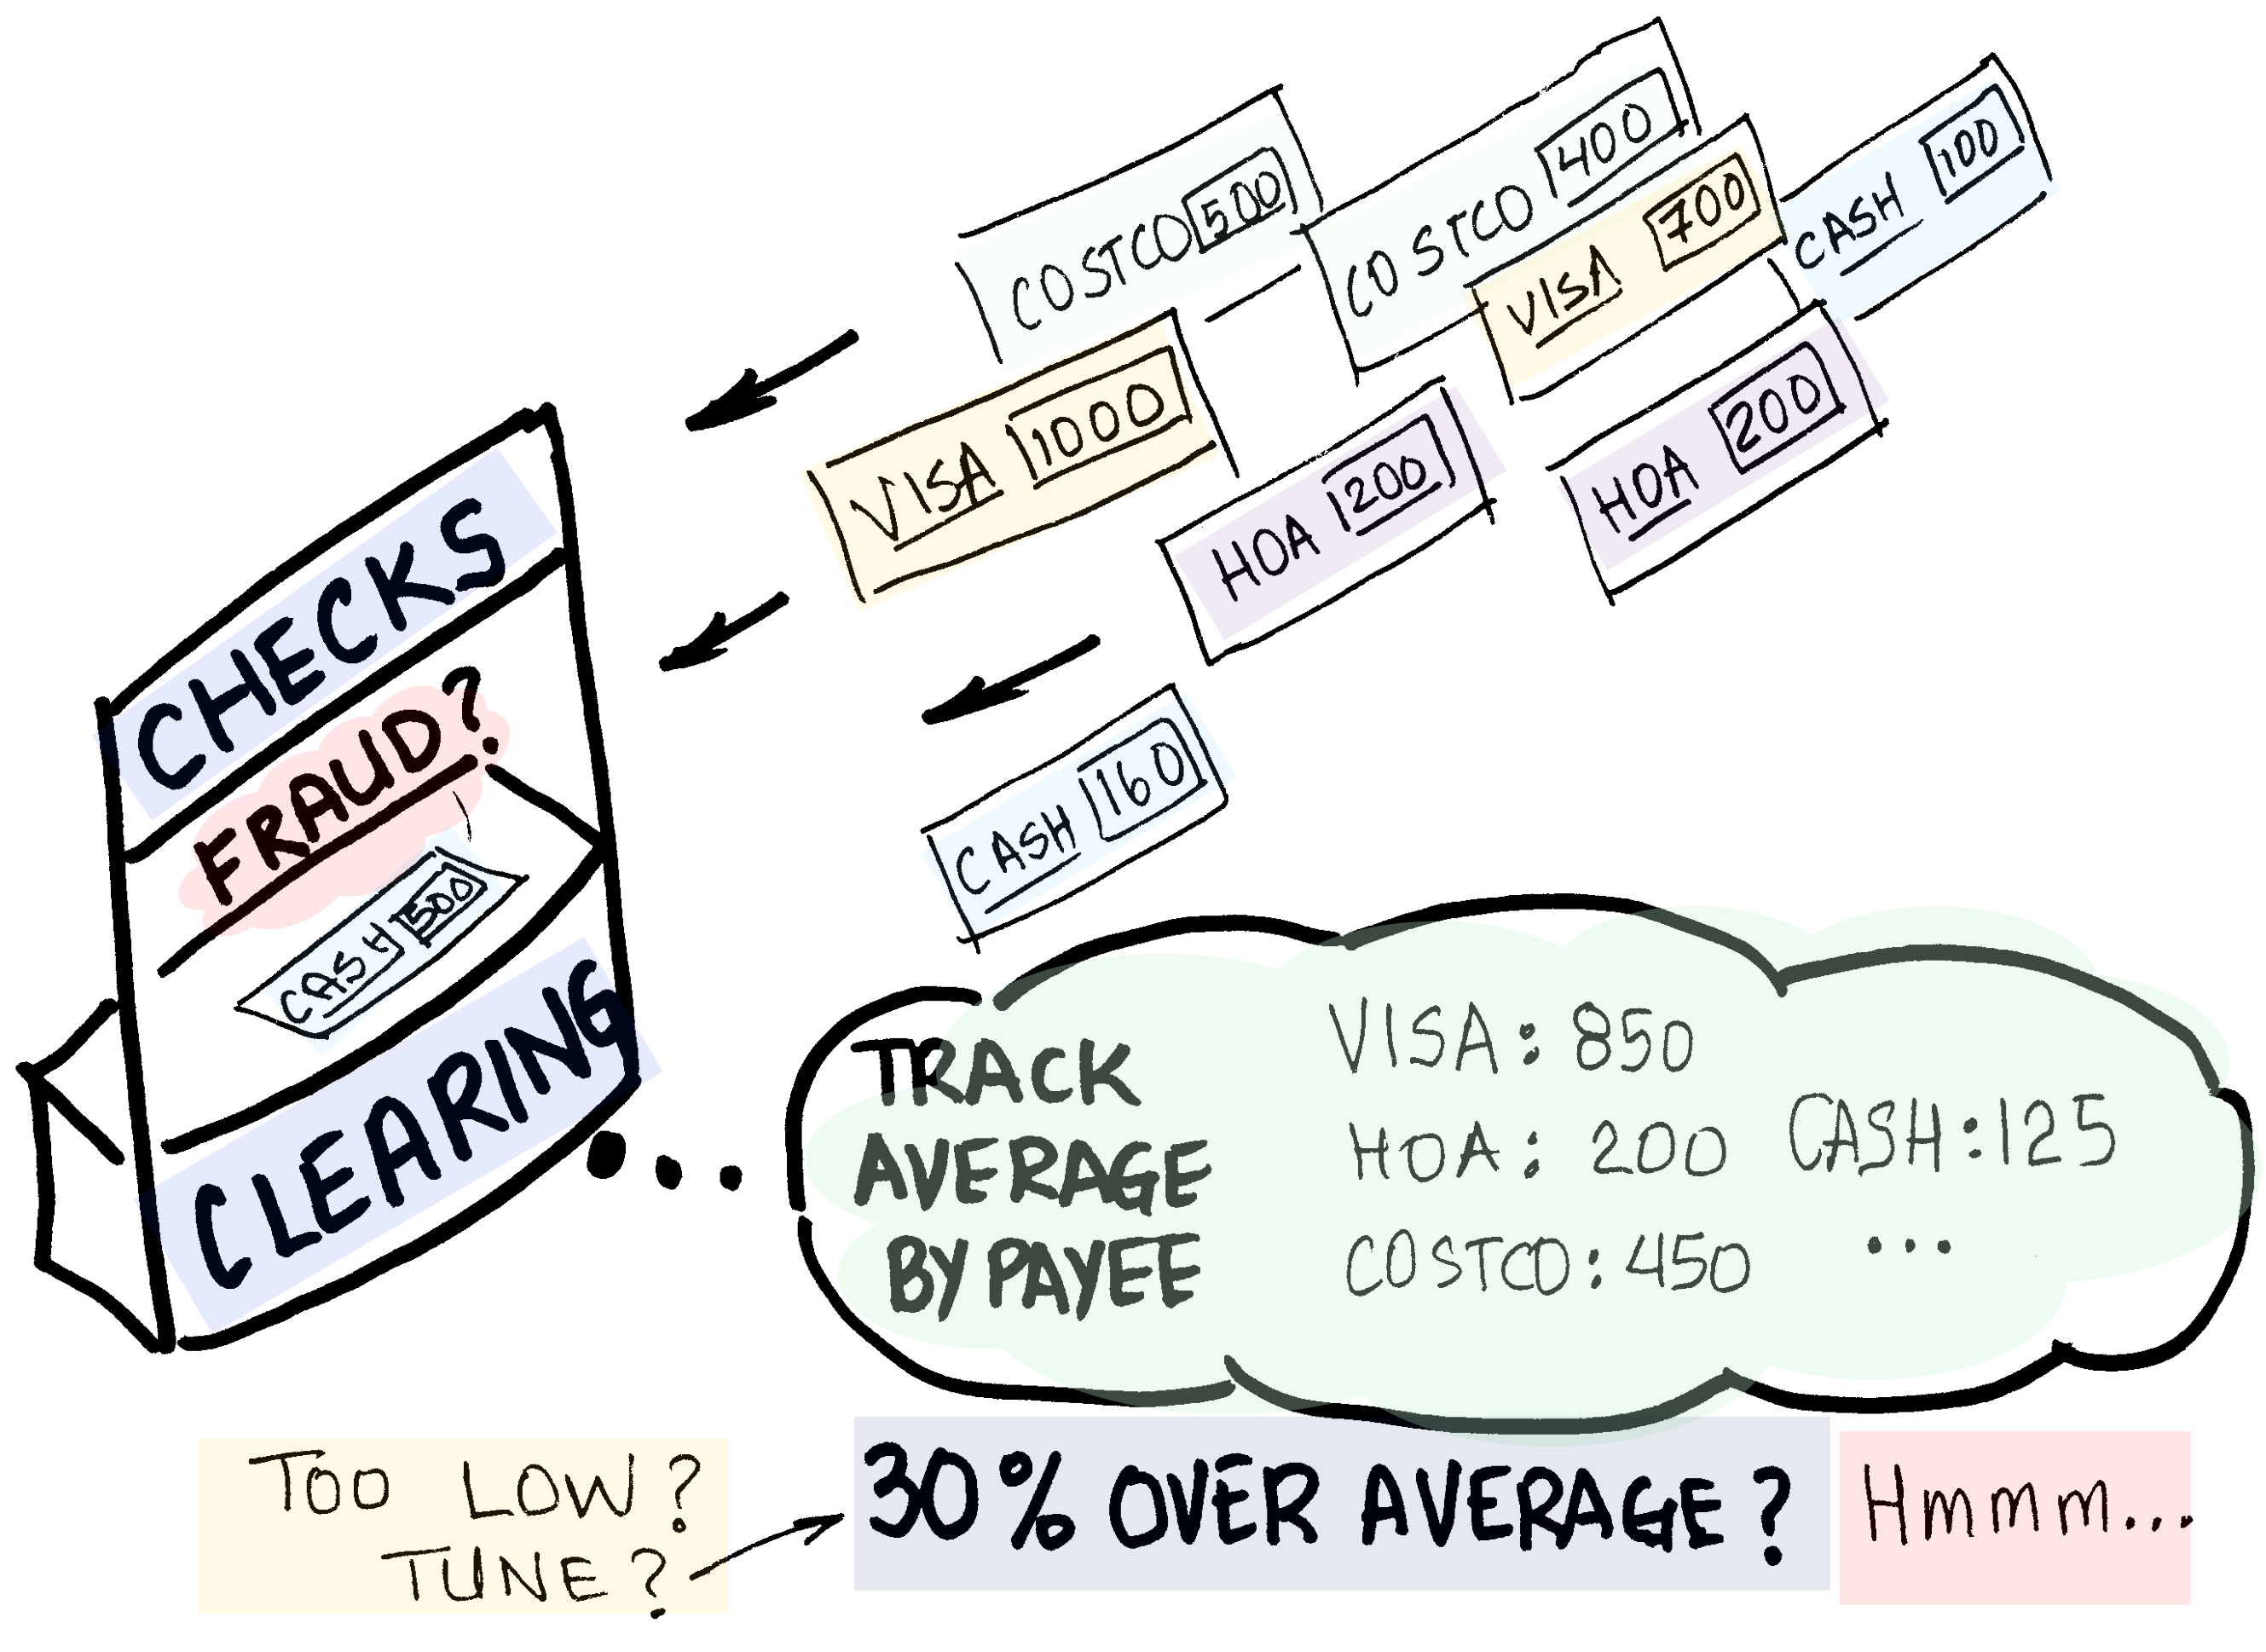 COSTCO 500
COSTCO 400
CASH 100
VISA 700
VISA 1000
HOA 200
HOA 200
CASH 160
CHECKS
FRAUD?
CASH 500
CLEARING
...
TRACK
AVERAGE
BY PAYEE
VISA: 850
HOA: 200
COSTCO: 450
CASH: 125
...
TOO LOW?
TUNE?
30% OVER AVERAGE?
Hmmm...